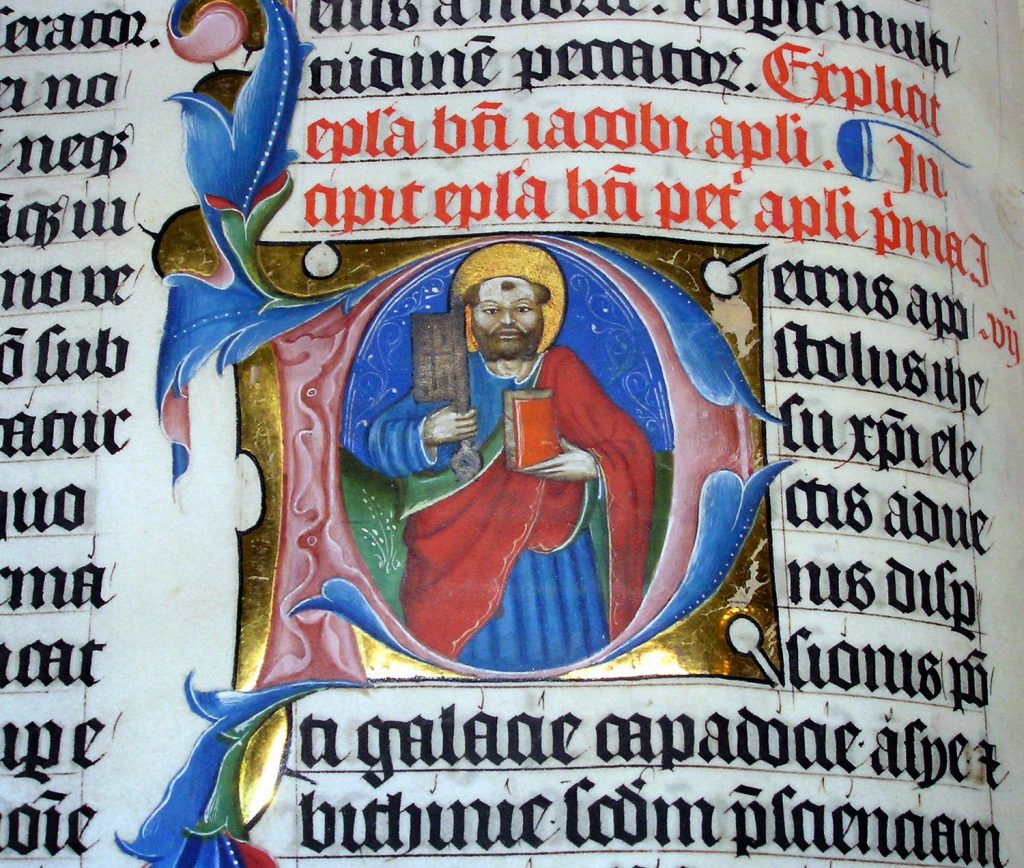 serator.
ei no
neqꝫ
iu
no ve
ō sub
quo
rma
icat
upe
oīe
eius a morte. & opit multi
tudinē peccatoꝝ. Explicit
epl'a bt̄i iacobi apl'i. In
cipit epl'a bt̄i pet' apl'i p'ma I
etrus apo .vij
stolus ihe
su xp̄i ele
ctis adue
nis disp̄
sionis pō
ti galacie capadocie. asye ⁊
bithinie. scd'm p̄scienciam